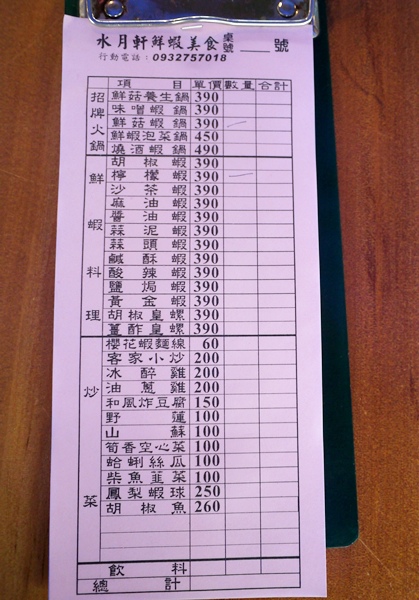 水月軒鮮蝦美食 桌號 號
行動電話：0932757018
項目 單價 數量 合計
招牌火鍋
鮮菇養生鍋 390
味噌蝦鍋 390
鮮菇蝦鍋 390
鮮蝦泡菜鍋 450
燒酒蝦鍋 490
鮮蝦料理
胡椒蝦 390
檸檬蝦 390
沙茶蝦 390
麻油蝦 390
醬油蝦 390
蒜泥蝦 390
蒜頭蝦 390
鹹酥蝦 390
酸辣蝦 390
鹽焗蝦 390
黃金蝦 390
胡椒皇螺 390
薑酢皇螺 390
炒菜
櫻花蝦麵線 60
客家小炒 200
冰醉雞 200
油蔥雞 200
和風炸豆腐 150
野蓮 100
山蘇 100
筍香空心菜 100
蛤蜊絲瓜 100
柴魚韭菜 100
鳳梨蝦球 250
胡椒魚 260
飲料
總計